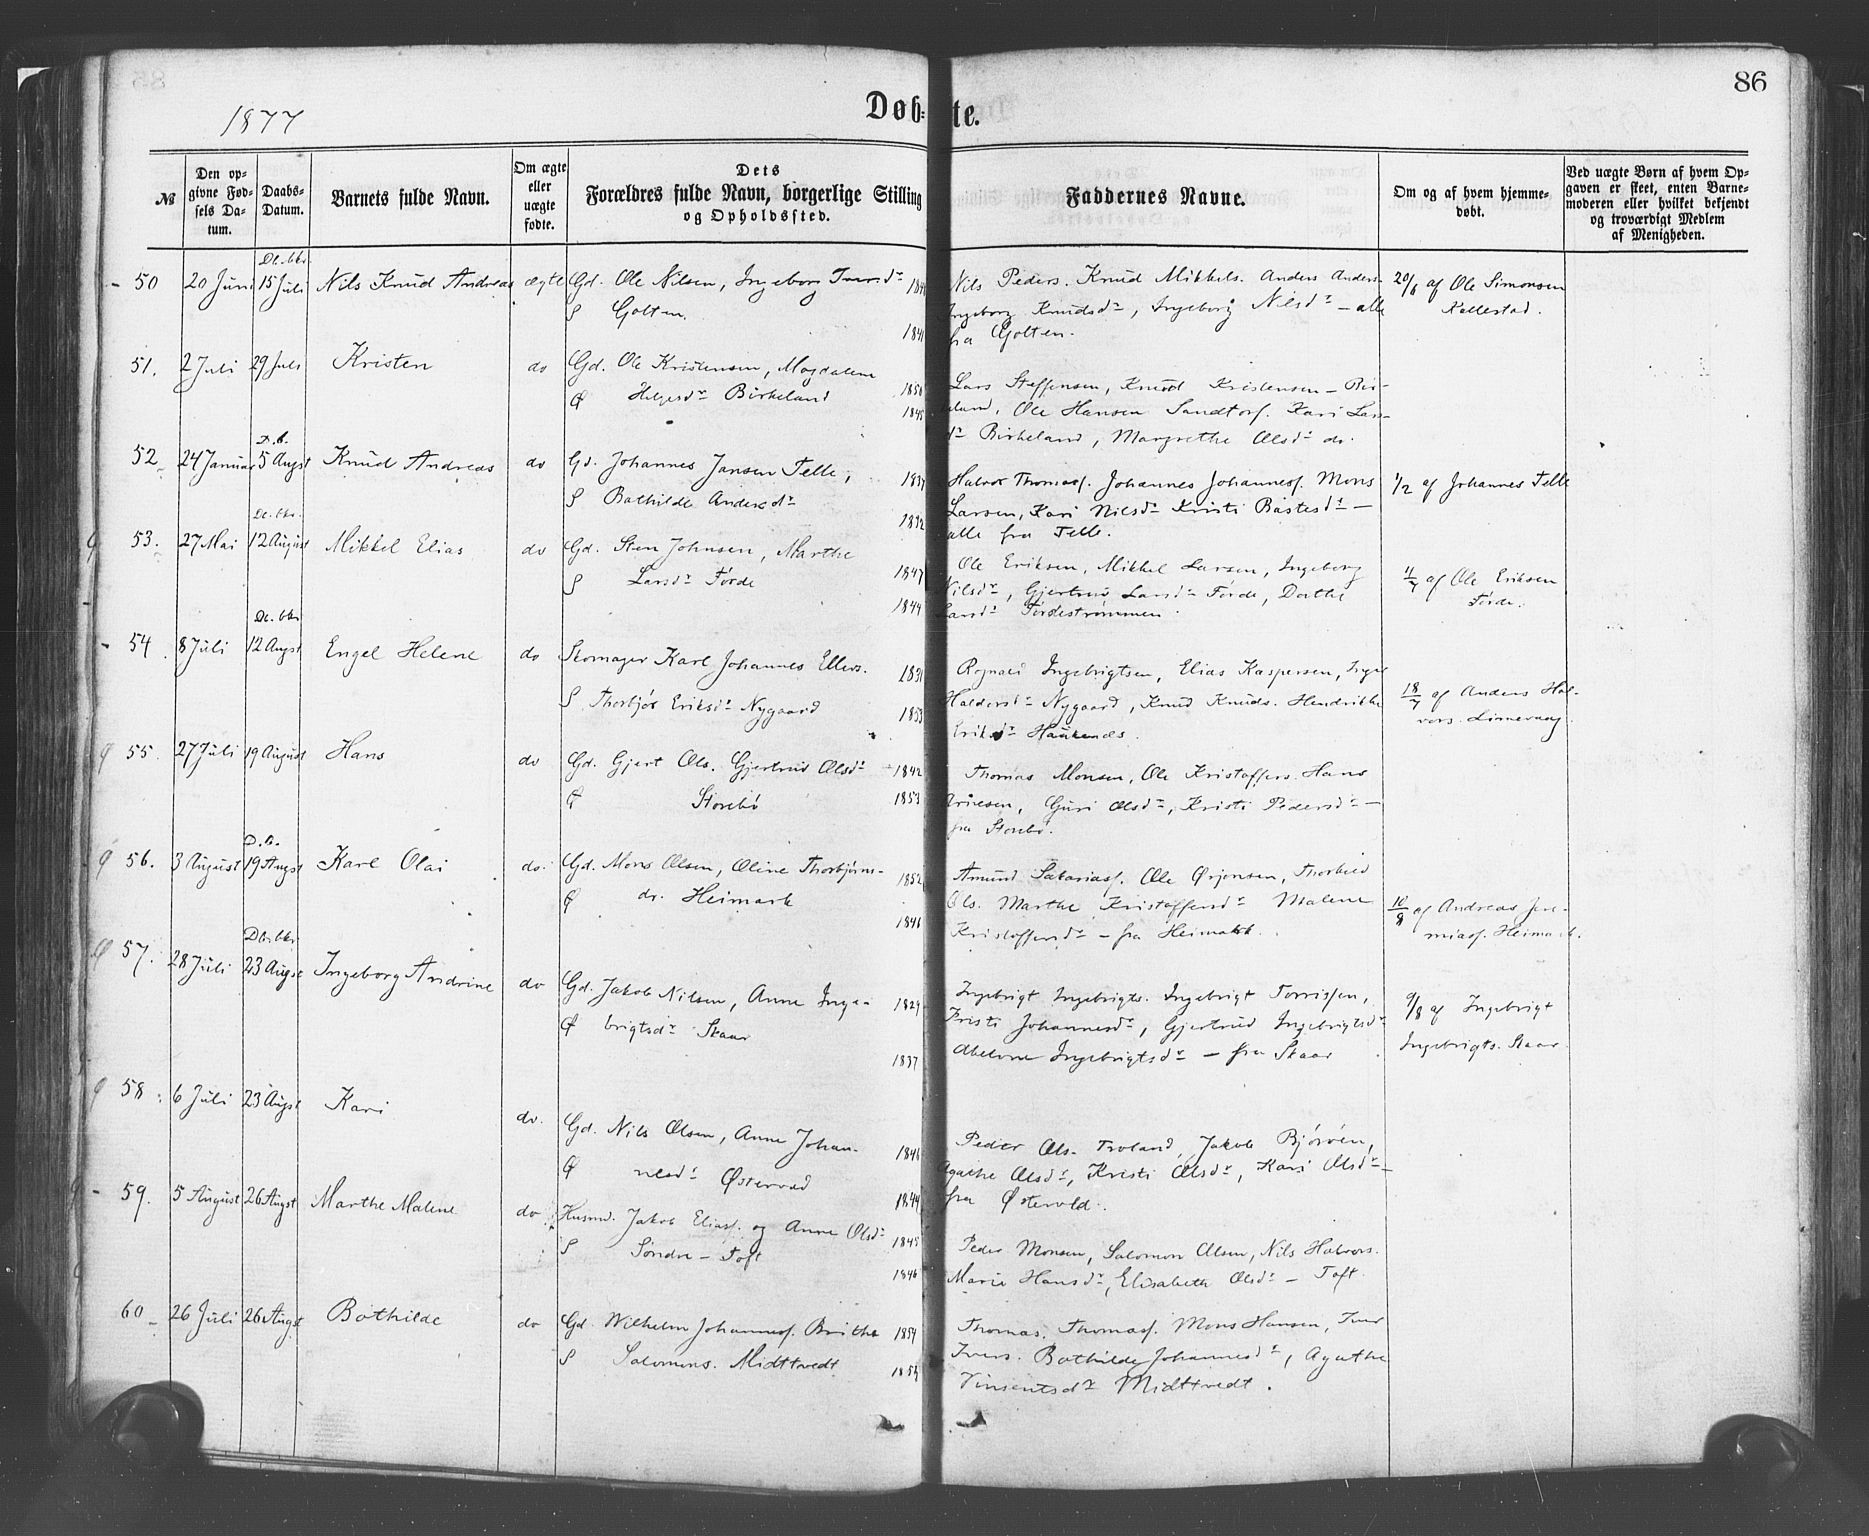 86
1877
Døb-te.
№
Den opgivne Fødsels Datum.
Daabs-Datum.
Barnets fulde Navn.
Om ægte eller uægte fødte.
Dets Forældres fulde Navn, borgerlige Stilling og Opholdssted.
Faddernes Navne.
Om og af hvem hjemmedøbt.
Ved uægte Børn af hvem Opgaven er skeet, enten Barnemoderen eller hvilket bekjendt og troværdigt Medlem af Menigheden.
50 20 Juni 15 Juli Nils Knud Andreas ægte Gd. Ole Nilsen, Ingeborg
S Golten. 1841
Nils Peders. Knud Mikkels. Anders Anders.
Ingeborg Knudsdr, Ingeborg Nilsdr - alle
fra Golten.
20/6 af Ole Simonsen
Kallestad.
51. 2 Juli 29 Juli Kristen do Gd. Ole Kristensen, Magdalene 1850
Ø Helgesdr Birkeland 1845
Lars Steffensen, Knud Kristensen - Bir-
keland, Ole Hansen Sandtorf. Kari Lars-
dr Birkeland, Margrethe Olsdr do.
52 24 Januar D. b. 5 Augst Knud Andreas do Gd. Johannes Jansen Telle, 1837
S Bothilde Andersdr 1832
Halvor Thomass. Johannes Johanness. Mons
Larsen, Kari Nilsdr Kristi Bastesdr -
alle fra Telle.
1/2 af Johannes Telle
53. 27 Mai 12 August Mikkel Elias do Gd. Sten Johnsen, Marthe 1847
S Larsdr Førde 1844
Ole Eriksen, Mikkel Larsen, Ingeborg
Nilsdr, Gjertrud Larsdr Førde, Dorthe
Larsdr Førdestrømmen.
4/7 af Ole Eriksen
Førde.
54 8 Juli 12 Augst Engel Helene do Skomager Karl Johannes Ellers. 1831
S Thorbjør Eriksdr Nygaard 1833
Rognald Ingebrigtsen, Elias Kaspersen, Inger
Haldorsdr Nygaard, Knud Knuds. Hendrikke
Eriksdr Haukenæs.
18/7 af Anders Hal-
vors. Linnevaag
55. 27 Juli 19 August Hans do Gd. Gjert Ols. Gjertrud Olsdr 1842
Ø Storebø 1853
Thomas Monsen, Ole Kristoffers. Hans
Guri Olsdr, Kristi Pedersdr -
fra Storebø.
56. 3 August D. b. 19 Augst Karl Olai do. Gd. Mons Olsen, Oline Thorbjørns- 1852
Ø dr. Heimark 1846
Amund Sakariass. Ole Ørjansen, Thorkild
Ols. Marthe Kristoffersdr Malene
Kristoffersdr - fra Heimark.
10/8 af Andreas Jere-
miass. Heimark.
57. 28 Juli 23 Augst Ingeborg Andrine do Gd. Jakob Nilsen, Anne Inge- 1829
Ø brigtsdr Skaar 1837
Ingebrigt Ingebrigts. Ingebrigt Torrissen,
Kristi Johannesdr, Gjertrud Ingebrigtsdr
Abelone Ingebrigtsdr - fra Skaar
9/8 af Ingebrigt
Ingebrigts. Skaar.
58. 6 Juli 23 Augst Kari do. Gd. Nils Olsen, Anne Johan- 1846
Ø nesdr Østervold 1844
Peder Ols. Troland, Jakob Bjørøen,
Agathe Olsdr, Kristi Olsdr, Kari Olsdr -
fra Østervold.
59. 5 August 26 Augst Marthe Malene do Husmd. Jakob Eliass. og Anne Olsdr 1845
S Søndre - Toft 1846
Peder Monsen, Salomon Olsen, Nils Halvors.
Marie Hansdr, Elisabeth Olsdr - Toft.
60 26 Juli 26 Augst Bothilde do Gd. Wilhelm Johanness. Brithe 1854
S Salomons. Midttvedt
Thomas Thomass. Mons Hansen, Iver
Ivers. Bothilde Johannesdr, Agathe
Vinsentsdr Midttvedt.